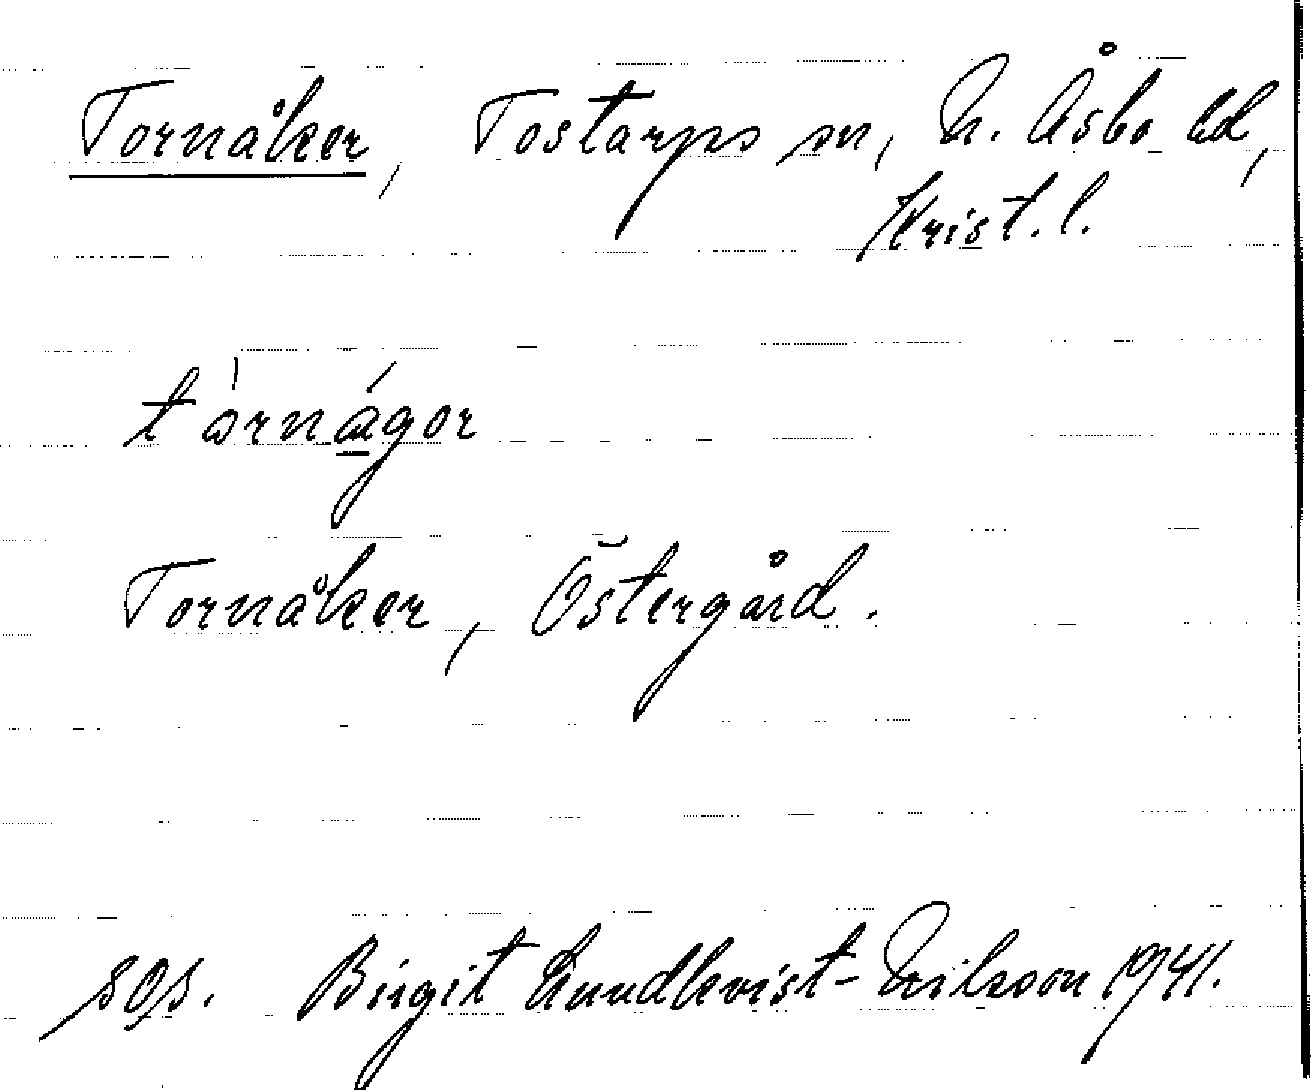 Tornåker, Tostarps sn, N. Åsbo hd,
Krist. l.
tòrnágor
Tornåker, Östergård.
sos. Birgit Lundkvist-Nilsson 1941.